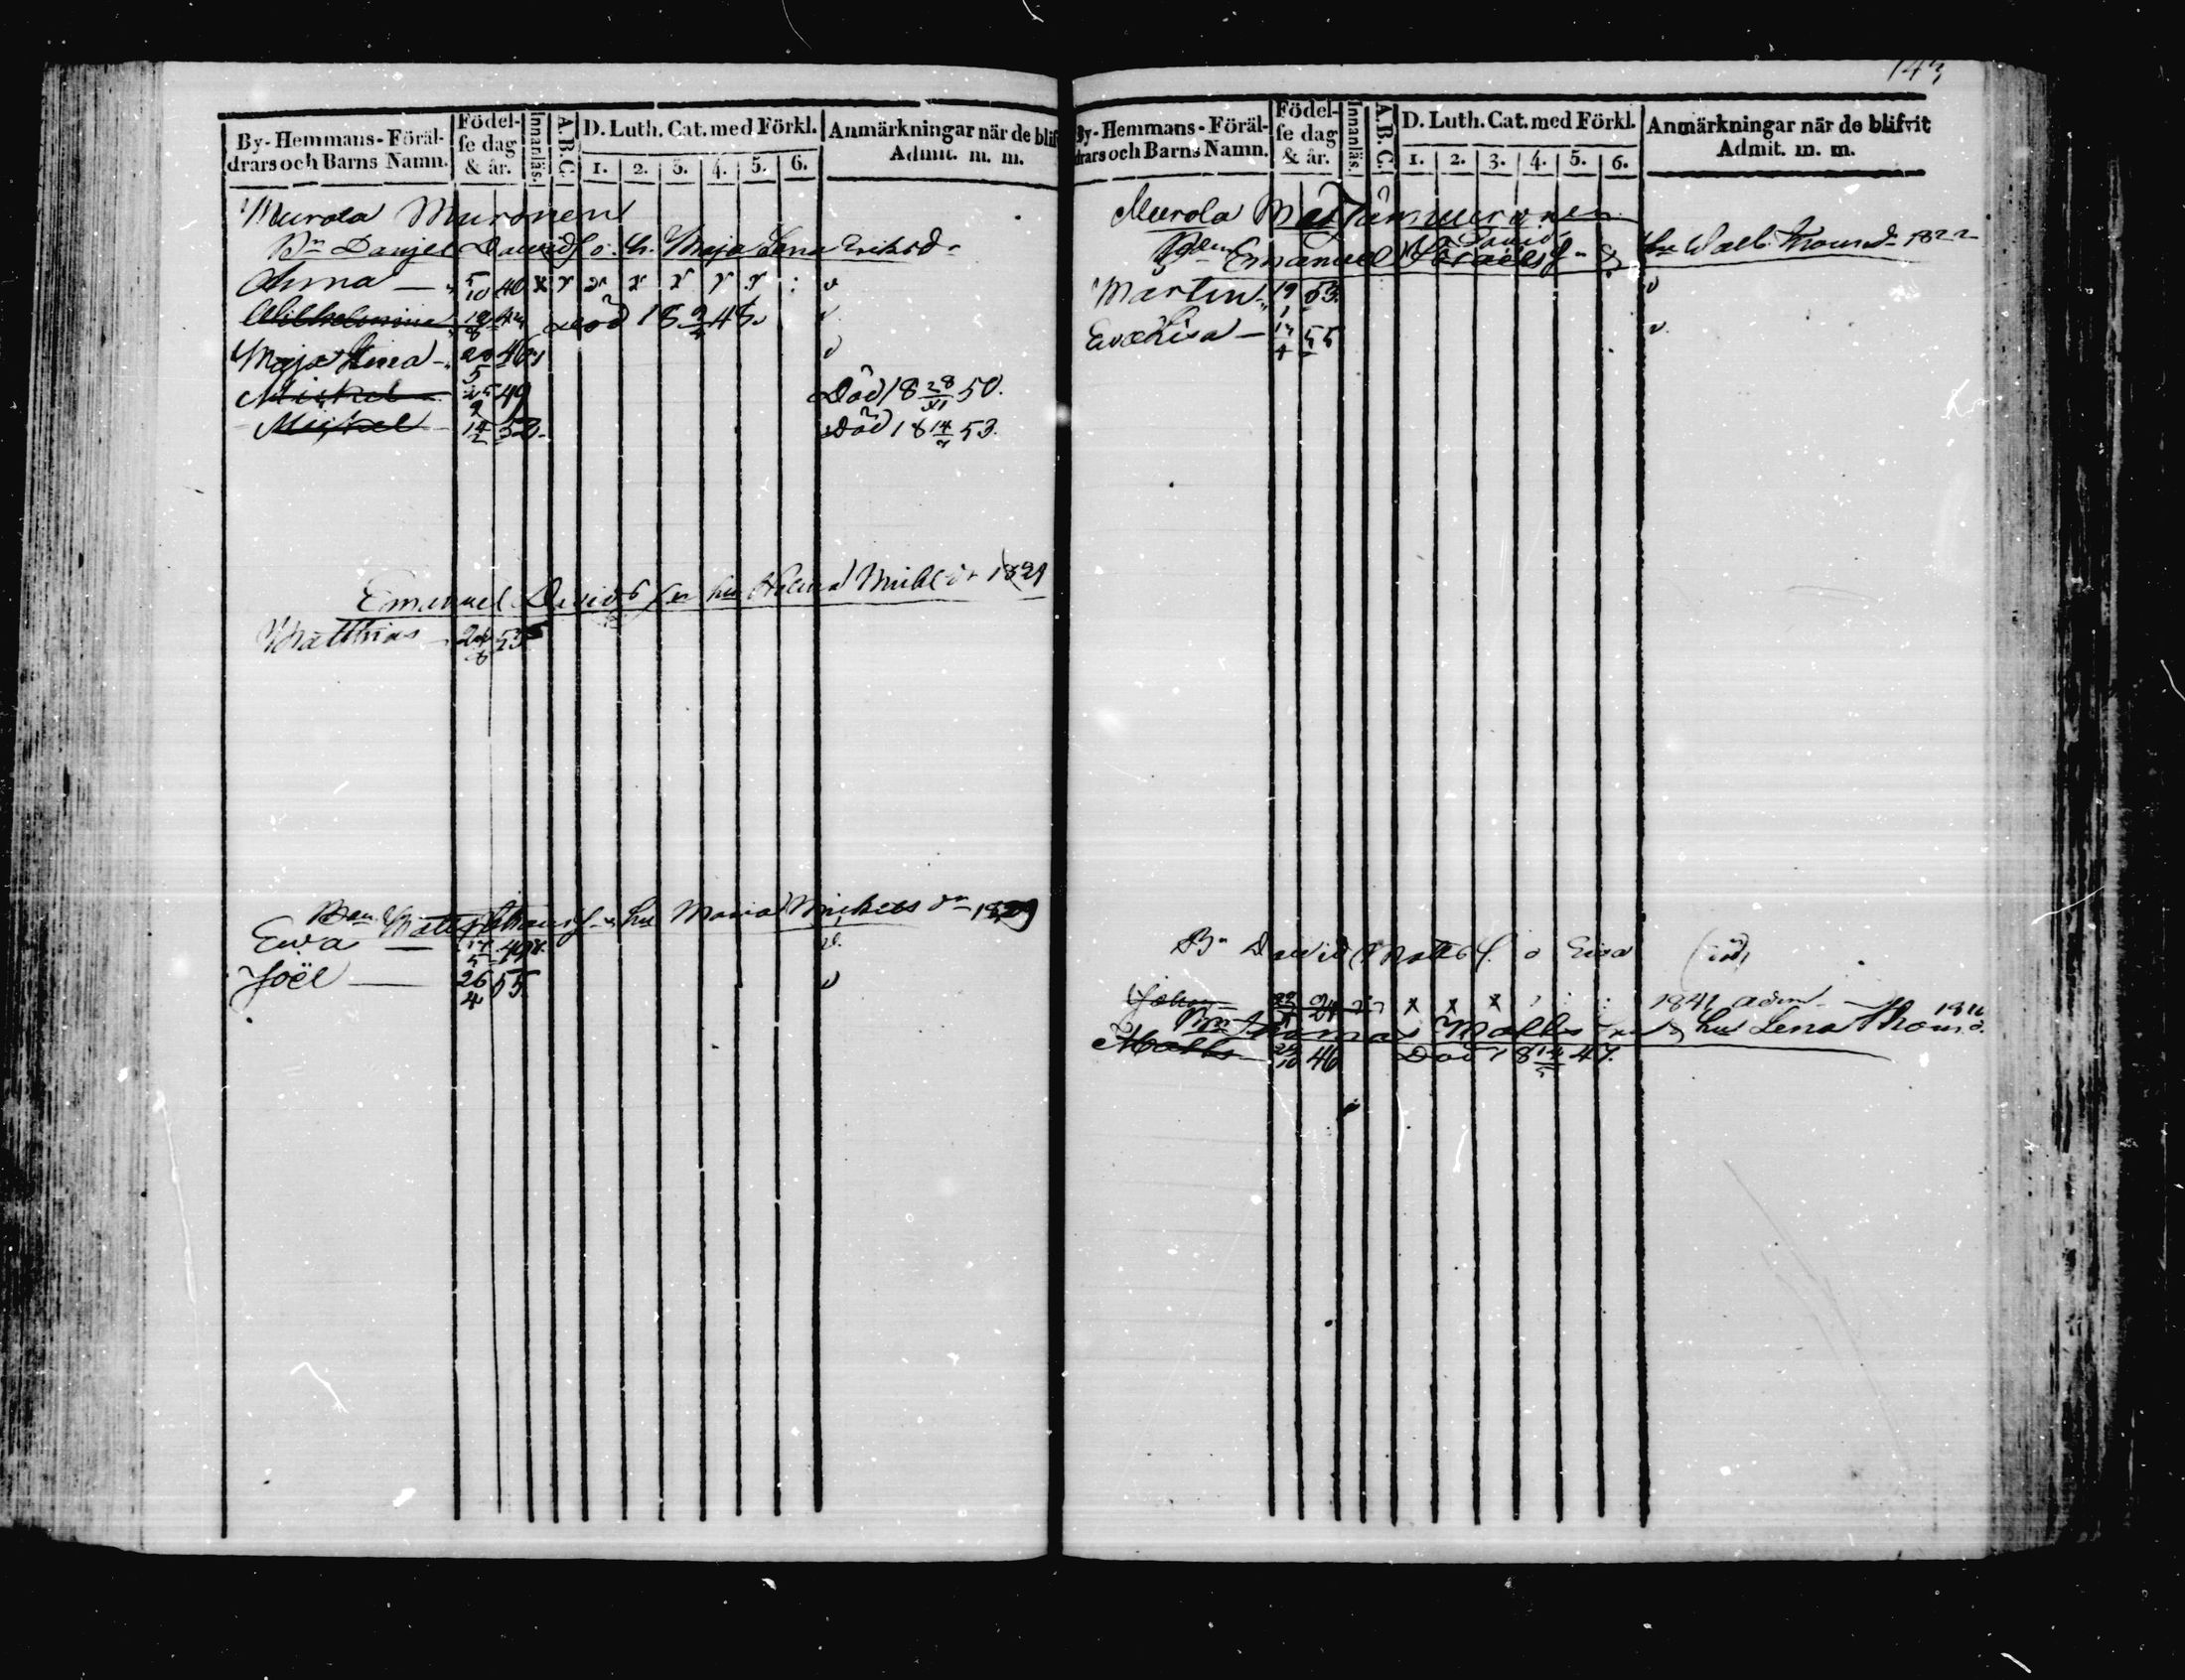 143
By-Hemmans-Föräl-
drars och Barns Namn.
Födel-
se dag
& år.
Innanläs.
A.B.C.
D. Luth. Cat. med Förkl.
1. 2. 3. 4. 5. 6.
Anmärkningar när de blif
Admit. m. m.
Murola Muronen
Bn Danjel Davidss o. h. Maja Lena Eriksd
Anna 5/10 40 x x x x x x x v
Wilhelmina Död 18 48. v
Maja Lena 20/5 46 v
Mickel 25/9 49 Död 18 28/XI 50.
Mickel 14/2 53. Död 18 14/7 53.
Emanuel Davids hu Helena Mick dr 1829
Matthias 24/8 53
Bn Matts hu Maria Mickels dr 1829
Ewa 49 v.
Joël 26/4 55 v
By-Hemmans-Föräl-
drars och Barns Namn.
Födel-
se dag
& år.
Innanläs.
A.B.C.
D. Luth. Cat. med Förkl.
1. 2. 3. 4. 5. 6.
Anmärkningar när de blifvit
Admit. m. m.
Murola
David
Emanuel hu Walb. Thomd 1822
Martin 19/1 53. v
Eva Lisa 55 v.
Bn David Matts s. o Eisa
Johan x x x 1841 adm
1816
Bn Thomas Matts hu Lena Thom d.
Matts 29/10 46 Död 18 14/5 47.